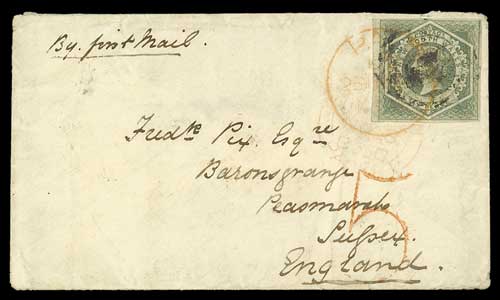 By first Mail.
Fredk Pix Esqre
Baronsgrange
Peasmarsh
Sussex.
England.
5